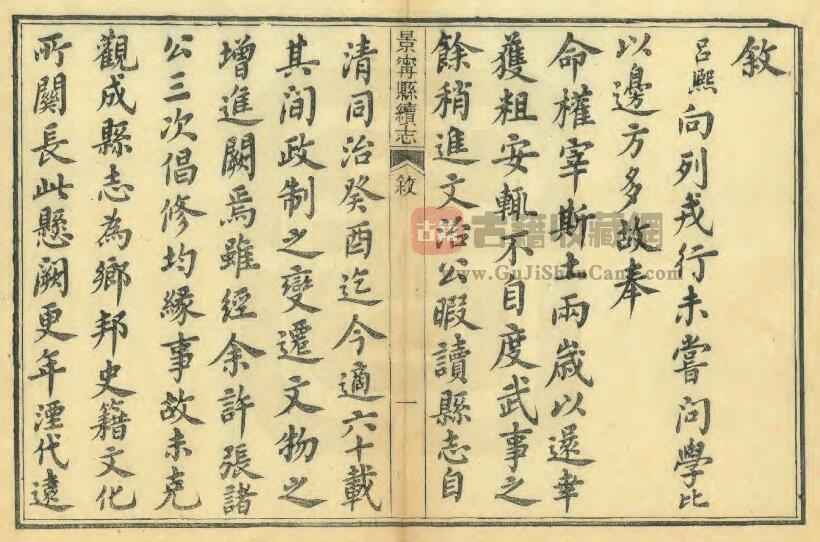 敘
呂熙向列戎行未嘗问學比
以邊方多故奉
命權宰斯土兩歲以還幸
獲粗安輒不自度武事之
餘稍進文治公暇讀縣志自
景寧縣續志
敘
一
清同治癸酉迄今適六十載
其间政制之變遷文物之
增進闕焉雖經余許張諸
公三次倡修均緣事故未克
觀成縣志為鄉邦史籍文化
所關長此懸闕更年湮代遠
古籍收藏網
www.GuJiShouCang.com